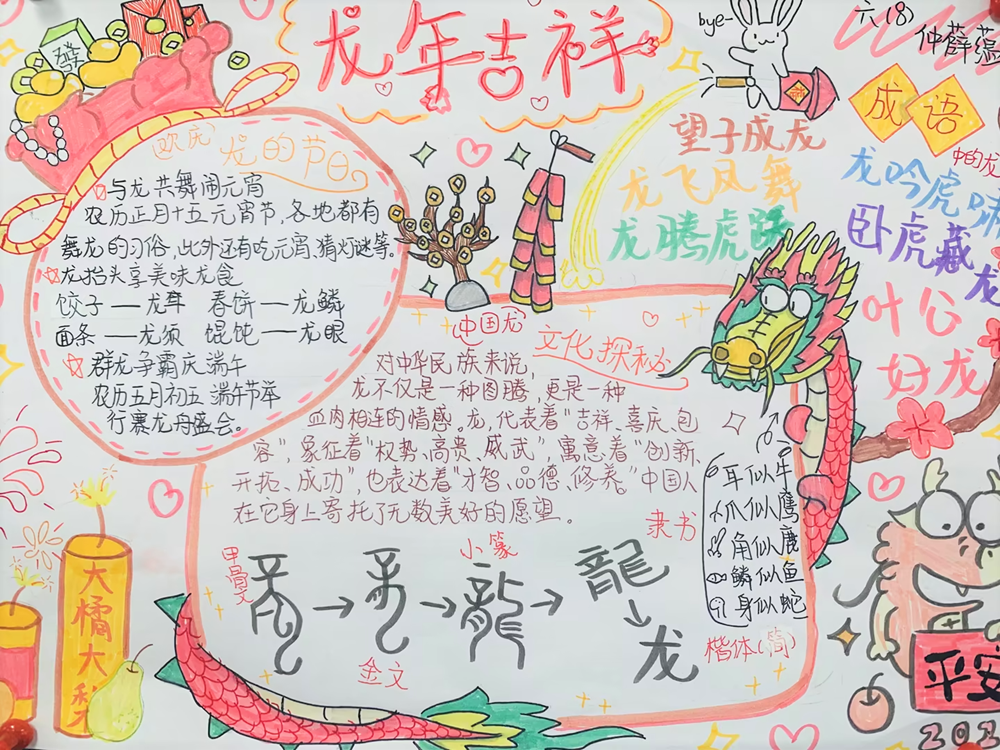 龙年吉祥
bye-
六(8)
仲薛蕴
發
欢庆 龙的节日
与龙共舞闹元宵
农历正月十五元宵节,各地都有
舞龙的习俗,此外还有吃元宵、猜灯谜等。
龙抬头享美味龙食
饺子——龙耳 春饼——龙鳞
面条——龙须 馄饨——龙眼
群龙争霸庆端午
农历五月初五端午节举
行赛龙舟盛会。
成语
中的龙
望子成龙
龙飞凤舞
龙腾虎跃
龙吟虎啸
卧虎藏龙
叶公
好龙
中国龙 文化探秘
对中华民族来说,
龙不仅是一种图腾,更是一种
血肉相连的情感。龙,代表着“吉祥、喜庆、包
容”,象征着“权势、高贵、威武”,寓意着“创新、
开拓、成功”,也表达着“才智、品德、修养。”中国人
在它身上寄托了无数美好的愿望。
耳似牛
爪似鹰
角似鹿
鳞似鱼
身似蛇
甲骨文
金文
小篆
隶书
龍
龍
龙
楷体(简)
大橘大
平安